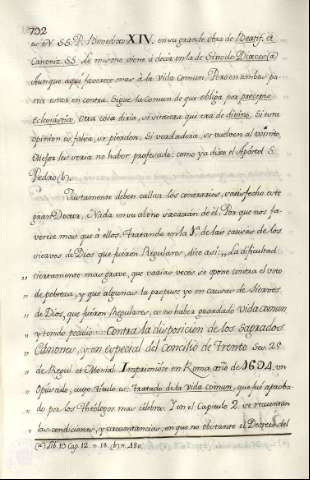 192
ro N. SS. P. Benedicto XIV. en su grande obra de Beatif. et
Canoniz. SS. lo mismo viene á decir en la de Sinodo Diœces. (a)
Aunque aqui favorece mas à la vida comun. Pero en ambas par-
tes estas en contra. Sigue la comun de que obliga por precepto
eclesiastico. Otra cosa diria, si viviera que era de divino. Si esta
opinion es falsa, se pierden. Si verdadera, se vuelven al vomito.
Mejor les seria no haber profesado: como ya dixo el Apostol S.
Pedro (b).
Justamente deben callar los contrarios, satisfecho este
gran Doctor. Nada mas obvio sacarán de él. Por que nos fa-
vorece mas que à ellos. Tratando en la 1ª de las causas de los
siervos de Dios que fueron Regulares, dice asi: „La dificultad
„ ciertamente mas grave, que varias veces se opone contra el voto
„ de pobreza, y que algunas la propuse yo en causas de Siervos
„ de Dios, que fueron Regulares, es no haber guardado vida comun
„ y tenido peculio contra la disposicion de los Sagrados
„ Canones, y en especial del Concilio de Trento Ses. 25.
„ de Regul. et Monial. Imprimióse en Roma año de 1694. un
„ Opúsculo, cuyo título es: tratado de la vida comun, que fué aproba-
„ do por los Theólogos mas célebres. Y en el Capitulo 2. se encuentran
„ las condiciones, y circunstancias, en que no obstante el Decreto del
(a) Lib. 13 Cap. 12. n. 18. (b)